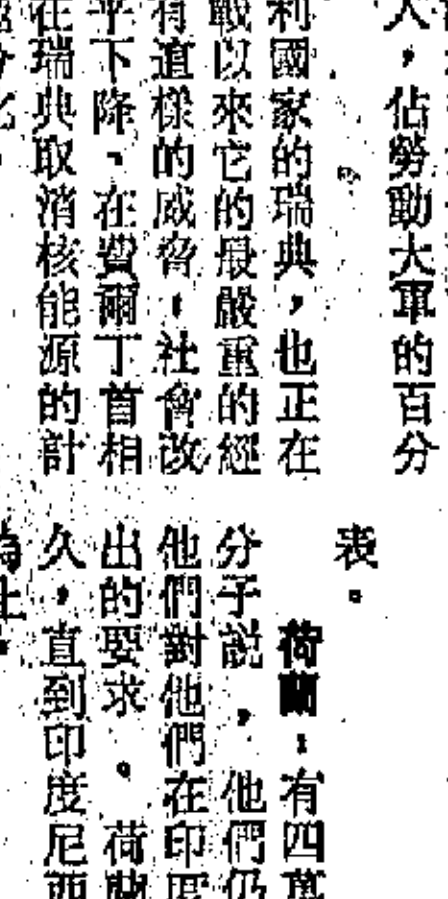 人，佔勞動大軍的百分
利國家的瑞典，也正在
戰以來它的最嚴重的經
有這樣的威脅，社會改
平下降、在費爾丁首相
在瑞典取消核能源的計
表。
荷蘭：有四萬
分子說，他們仍
他們對他們在印度
出的要求。荷蘭
久，直到印度尼西
為止。